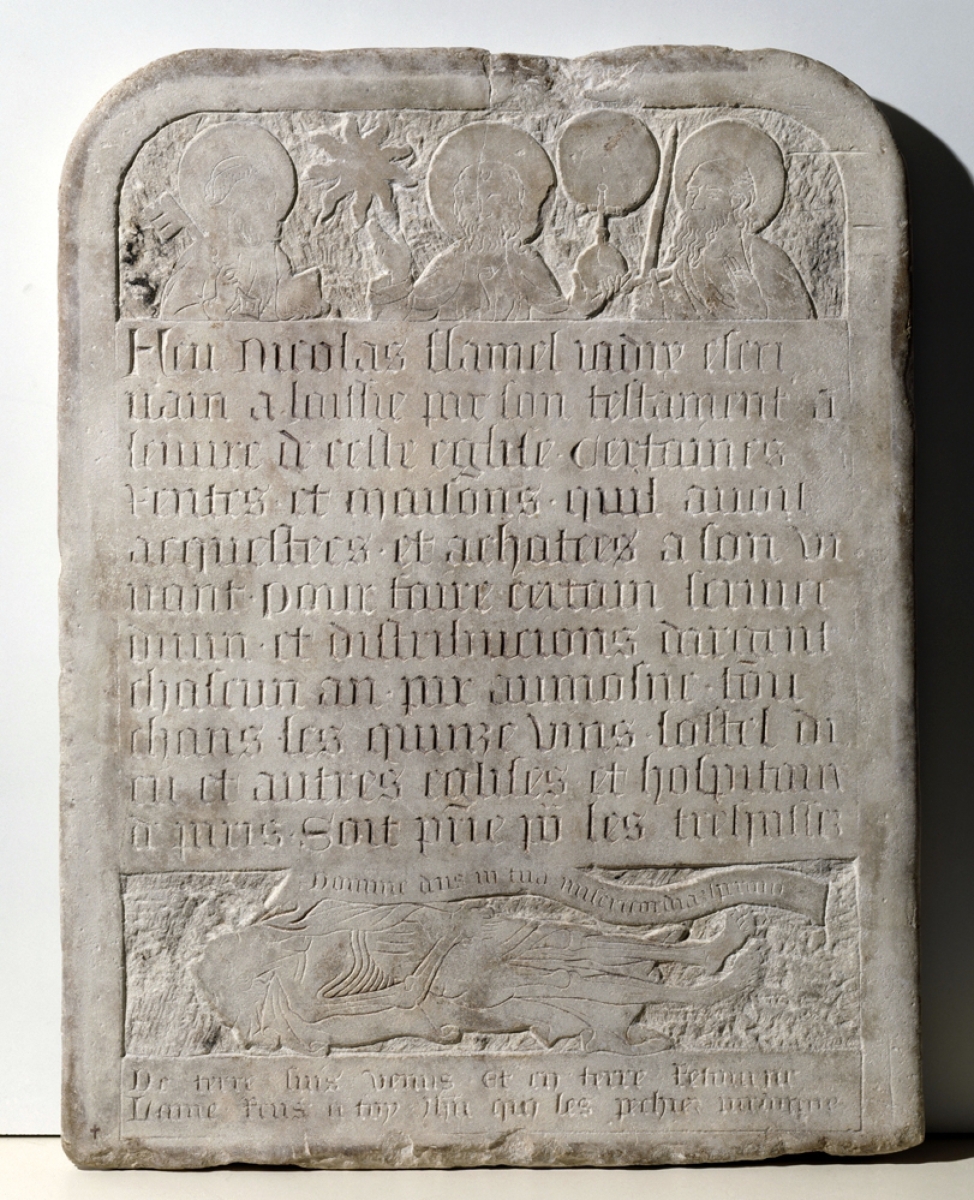 Feu nicolas flamel iadix escri
uain a laissie par son testament a
leuure de ceste eglise certaines
rentes et maisons quil auoit
acquestees et achatees a son vi
uant pour faire certain seruice
diuin et distribucions dargent
chascun an par aumosne tou
chans les quinze vins lostel di
eu et autres eglises et hospitaux
de paris Soit prie pour les trespassez
Domine deus in tua misericordia speraui
De terre suis venus et en terre retourne
Lame rens a toy ihu qui les pechiez pardonne